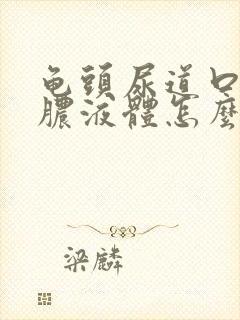 龟頭尿道口
膿液體怎麼
梁麟